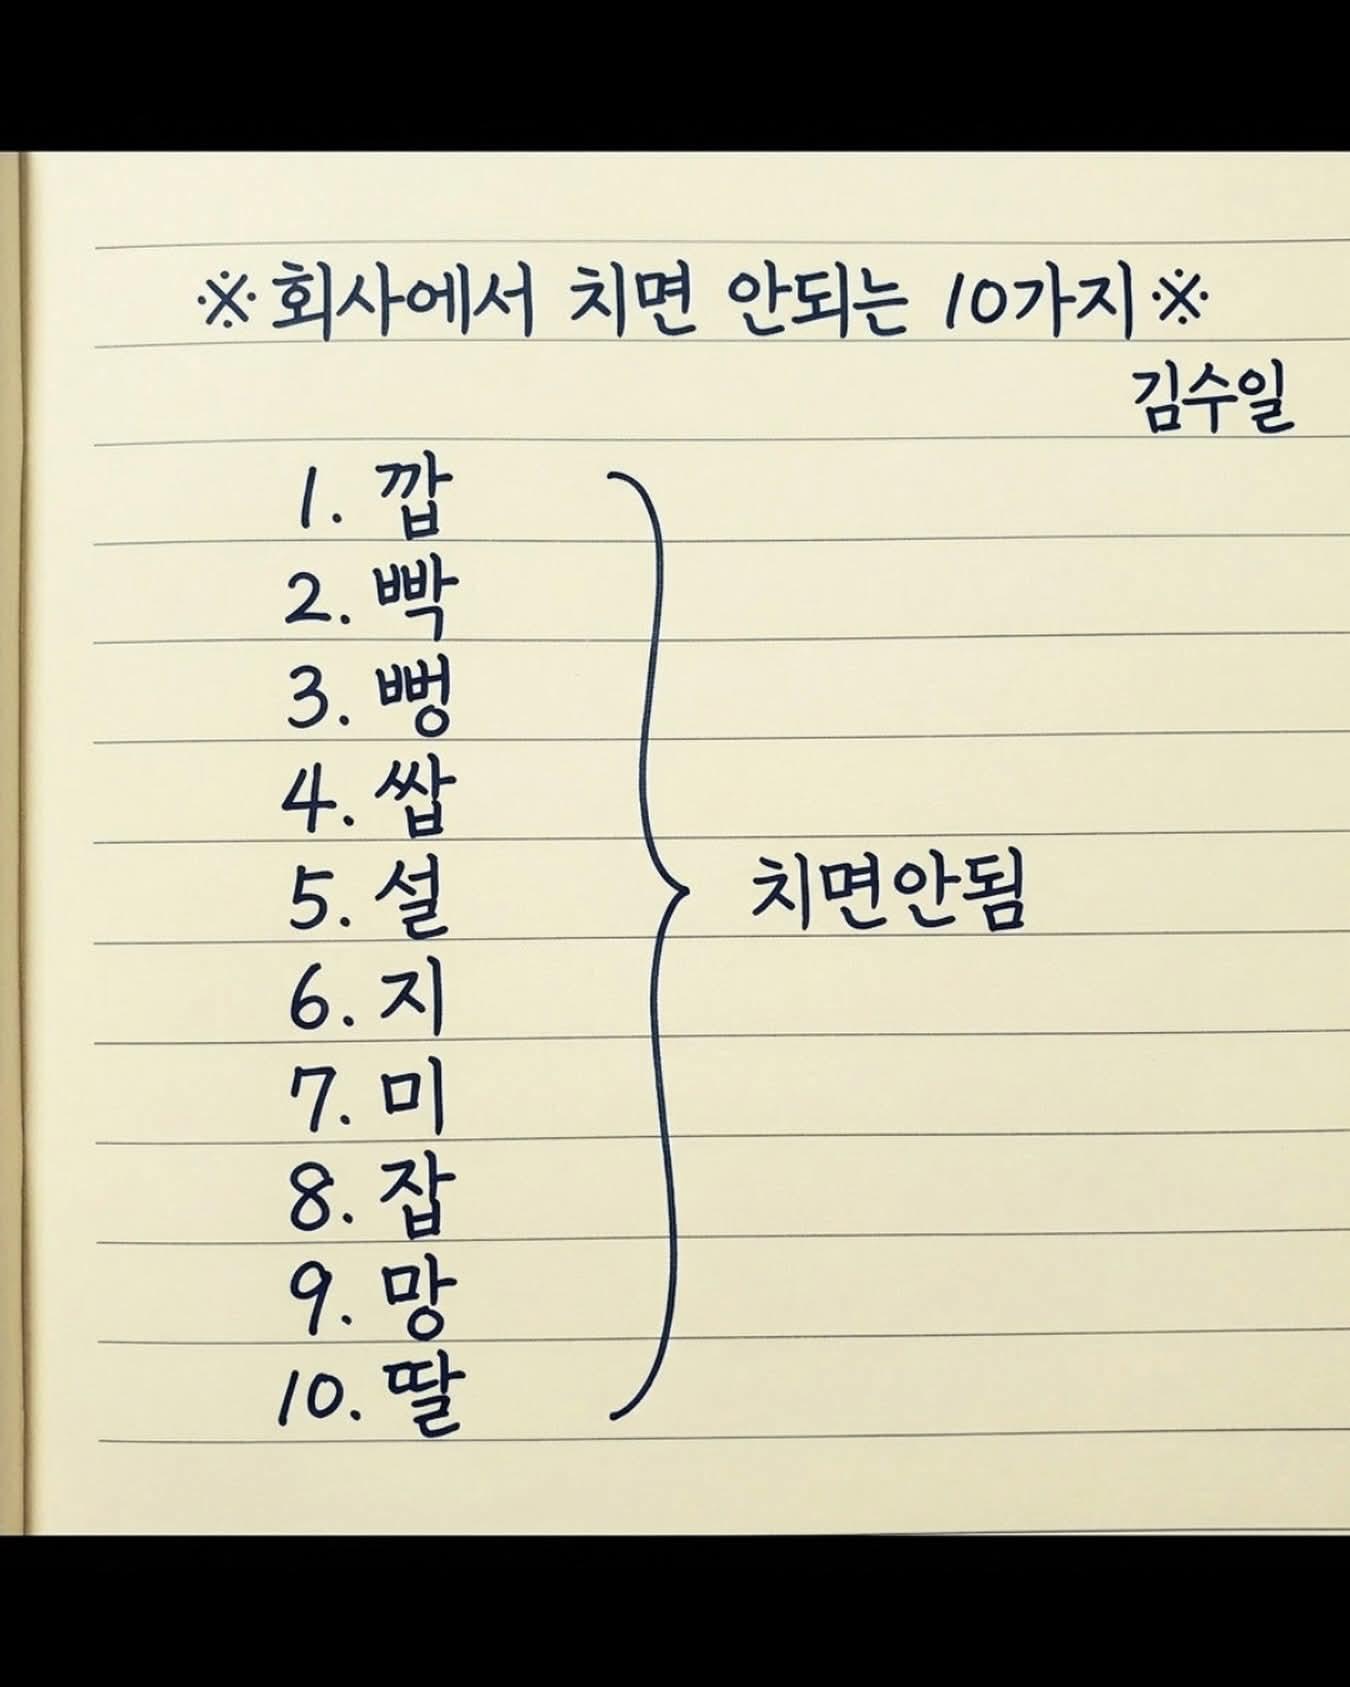 ※회사에서 치면 안되는 10가지※
김수일
1. 깝
2. 빡
3. 뻥
4. 쌉
5. 설
6. 지
7. 미
8. 잡
9. 망
10. 딸
치면안됨